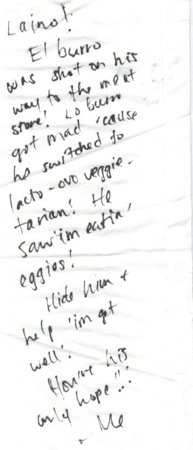 Laino!
El burro
was shot on his
way to the meat
store! Lo burro
got mad 'cause
he switched to
lacto-ovo veggie-
tarian! He
saw 'im eatin'
eggies!
Hide him &
help 'im get
well!
You're his
only hope!!!
~ Me